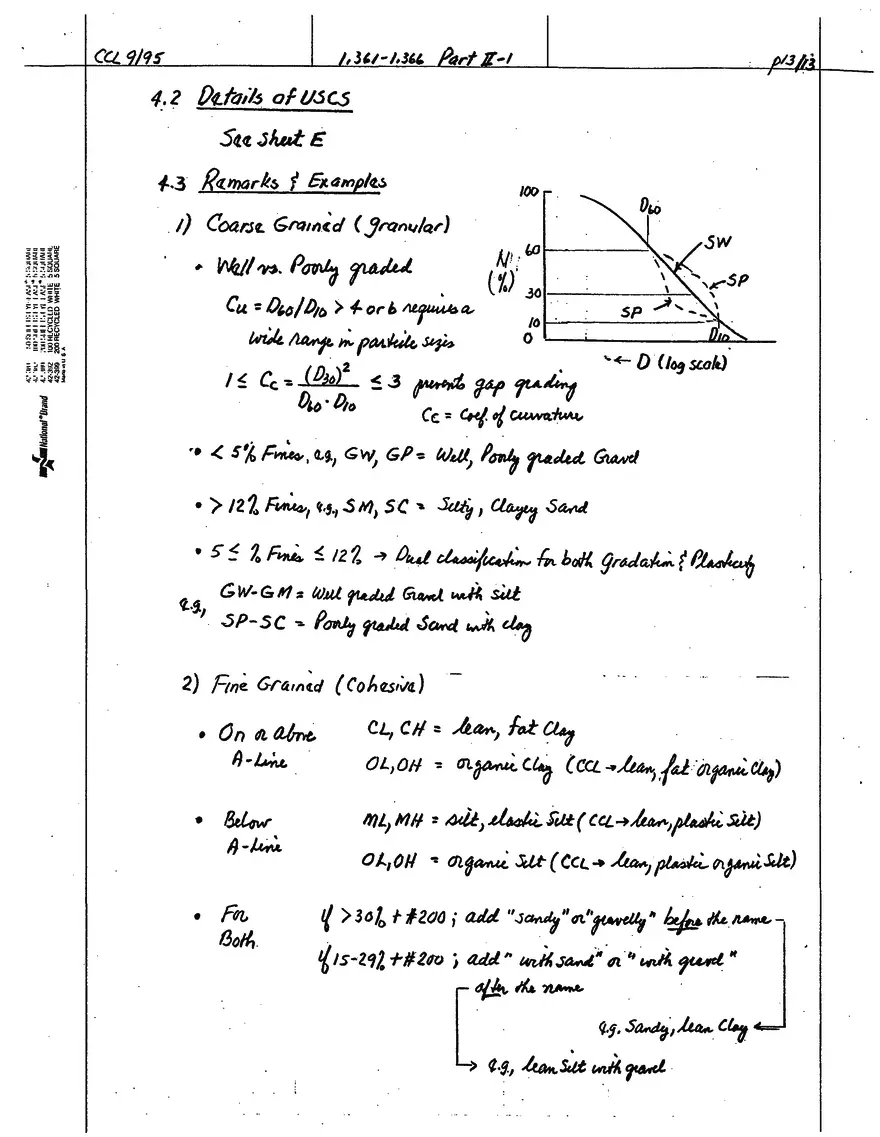 CCL 9/95
1.361-1.366 Part II-1
p13/13
4.2 Details of USCS
See Sheet E
4.3 Remarks & Examples
1) Coarse Grained (granular)
• Well vs. Poorly graded
Cu = D60/D10 > 4 or 6 requires a
wide range in particle sizes
1 ≤ Cc = (D30)² / D60·D10 ≤ 3 prevents gap grading
Cc = Coef. of curvature
100
60
30
10
0
N
(%)
D60
SW
SP
SP
D10
← D (log scale)
• < 5% Fines, e.g., GW, GP = Well, Poorly graded Gravel
• > 12% Fines, e.g., SM, SC = Silty, Clayey Sand
• 5 ≤ % Fines ≤ 12% → Dual classification for both Gradation & Plasticity
e.g.,
GW-GM = Well graded Gravel with silt
SP-SC = Poorly graded Sand with clay
2) Fine Grained (Cohesive)
• On or above
A-Line
CL, CH = lean, fat Clay
OL, OH = organic Clay (CCL → lean, fat organic Clay)
• Below
A-Line
ML, MH = silt, elastic Silt (CCL → lean, plastic Silt)
OL, OH = organic Silt (CCL → lean, plastic organic Silt)
• For
Both
if > 30% + #200 ; add "sandy" or "gravelly" before the name
if 15-29% + #200 ; add "with sand" or "with gravel"
after the name
e.g. Sandy, lean Clay
→ e.g., lean Silt with gravel
42-392 100 RECYCLED WHITE 5 SQUARE
42-399 200 RECYCLED WHITE 5 SQUARE
National Brand